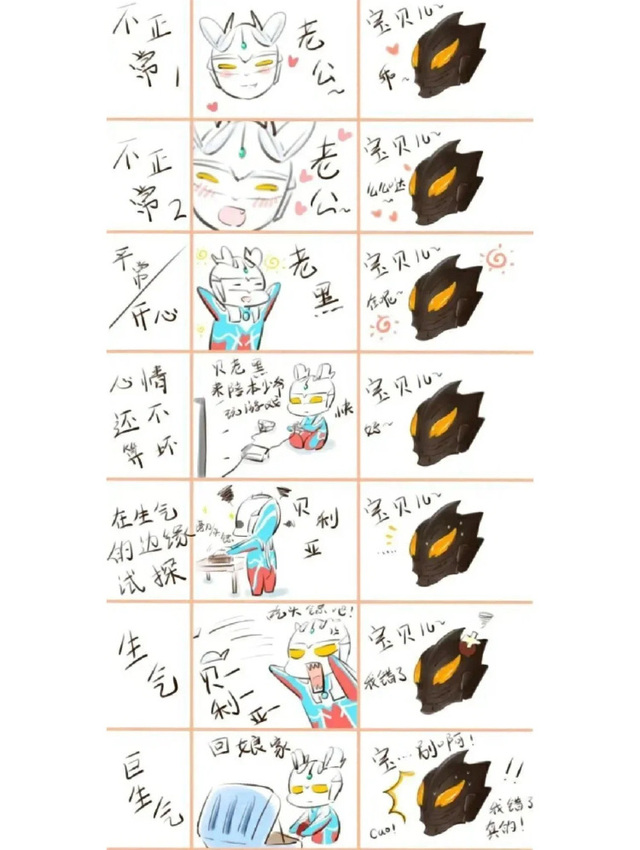 不正
常1
老
公~
宝贝儿~
乖~
不正
常2
老
公~
宝贝儿~
么么哒
平
常
/
开心
老
黑
宝贝儿~
在呢~
心情
还不
算坏
贝老黑
来陪本少爷
玩游戏
快
宝贝儿~
好~
在生气
的边缘
试探
贝
利
亚
宝贝儿~
……
生
气
吃头镖吧!
贝—
利—
亚—
宝贝儿~
我错了
巨
生
气
回娘家
宝…别啊!
!!
cuo!
我错了
真的!